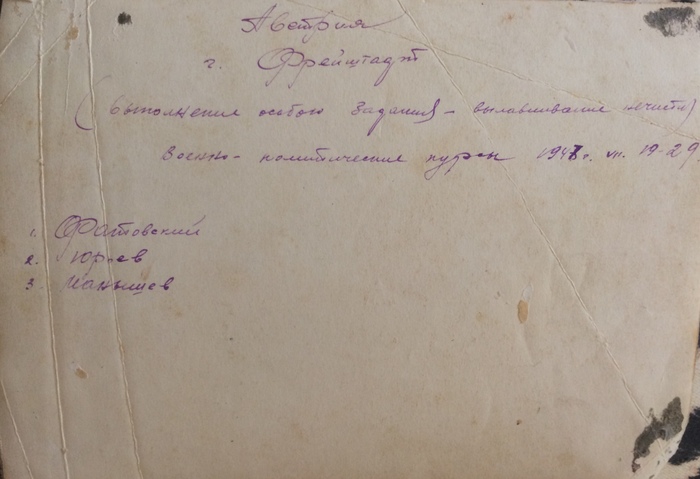 Австрия
г. Фрейштадт
(Выполнение особою задания - вылавливание нечисти)
Военно-политические курсы 1947г. VII. 19-29
1. Фатовский
2. Юрьев
3.